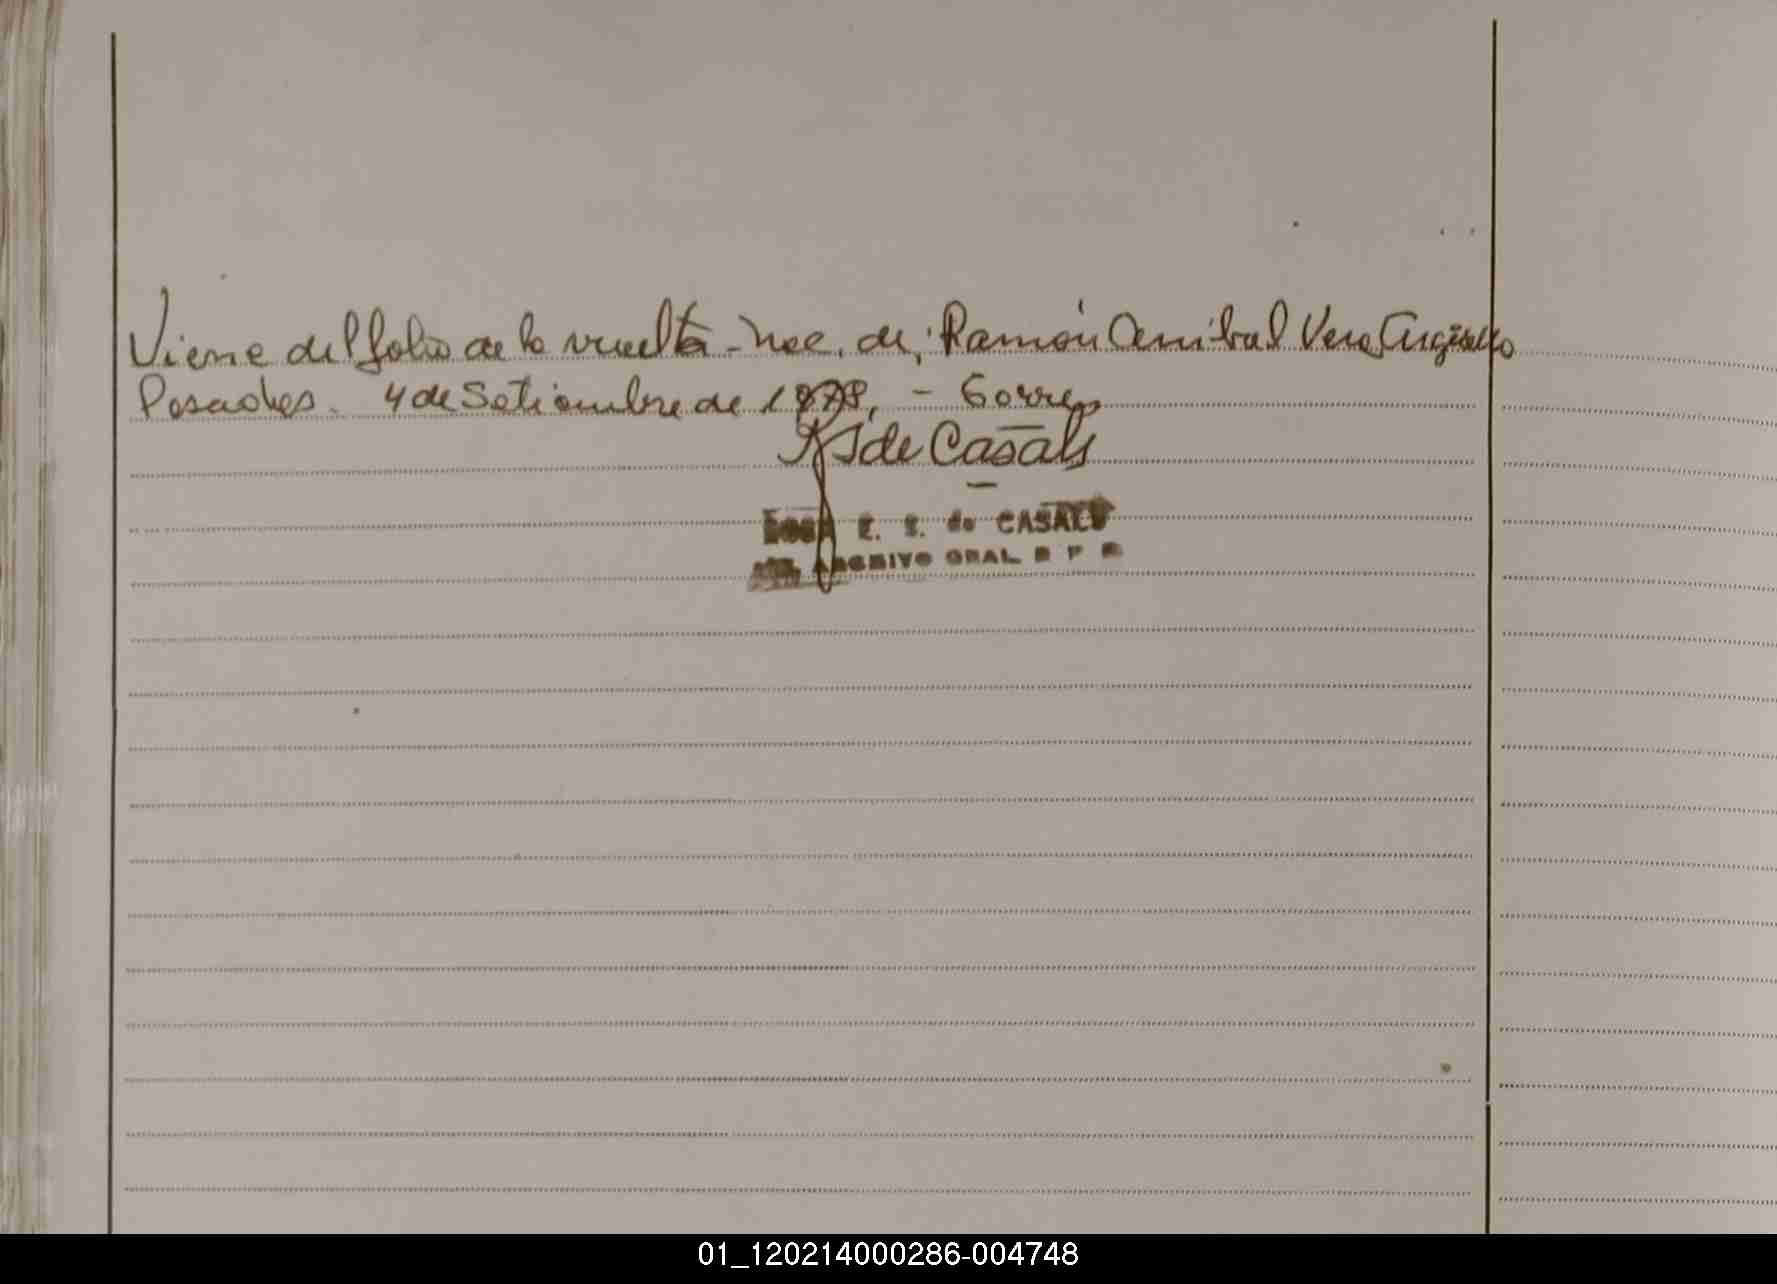 Viene del folio de la vuelta - Nac. de; Ramón Anibal Vera Argüello
Posadas. 4 de Setiembre de 1978, - Corre
RS de Casals
ROSA E. S. de CASALS
ARCHIVO GRAL R P
01_120214000286-004748